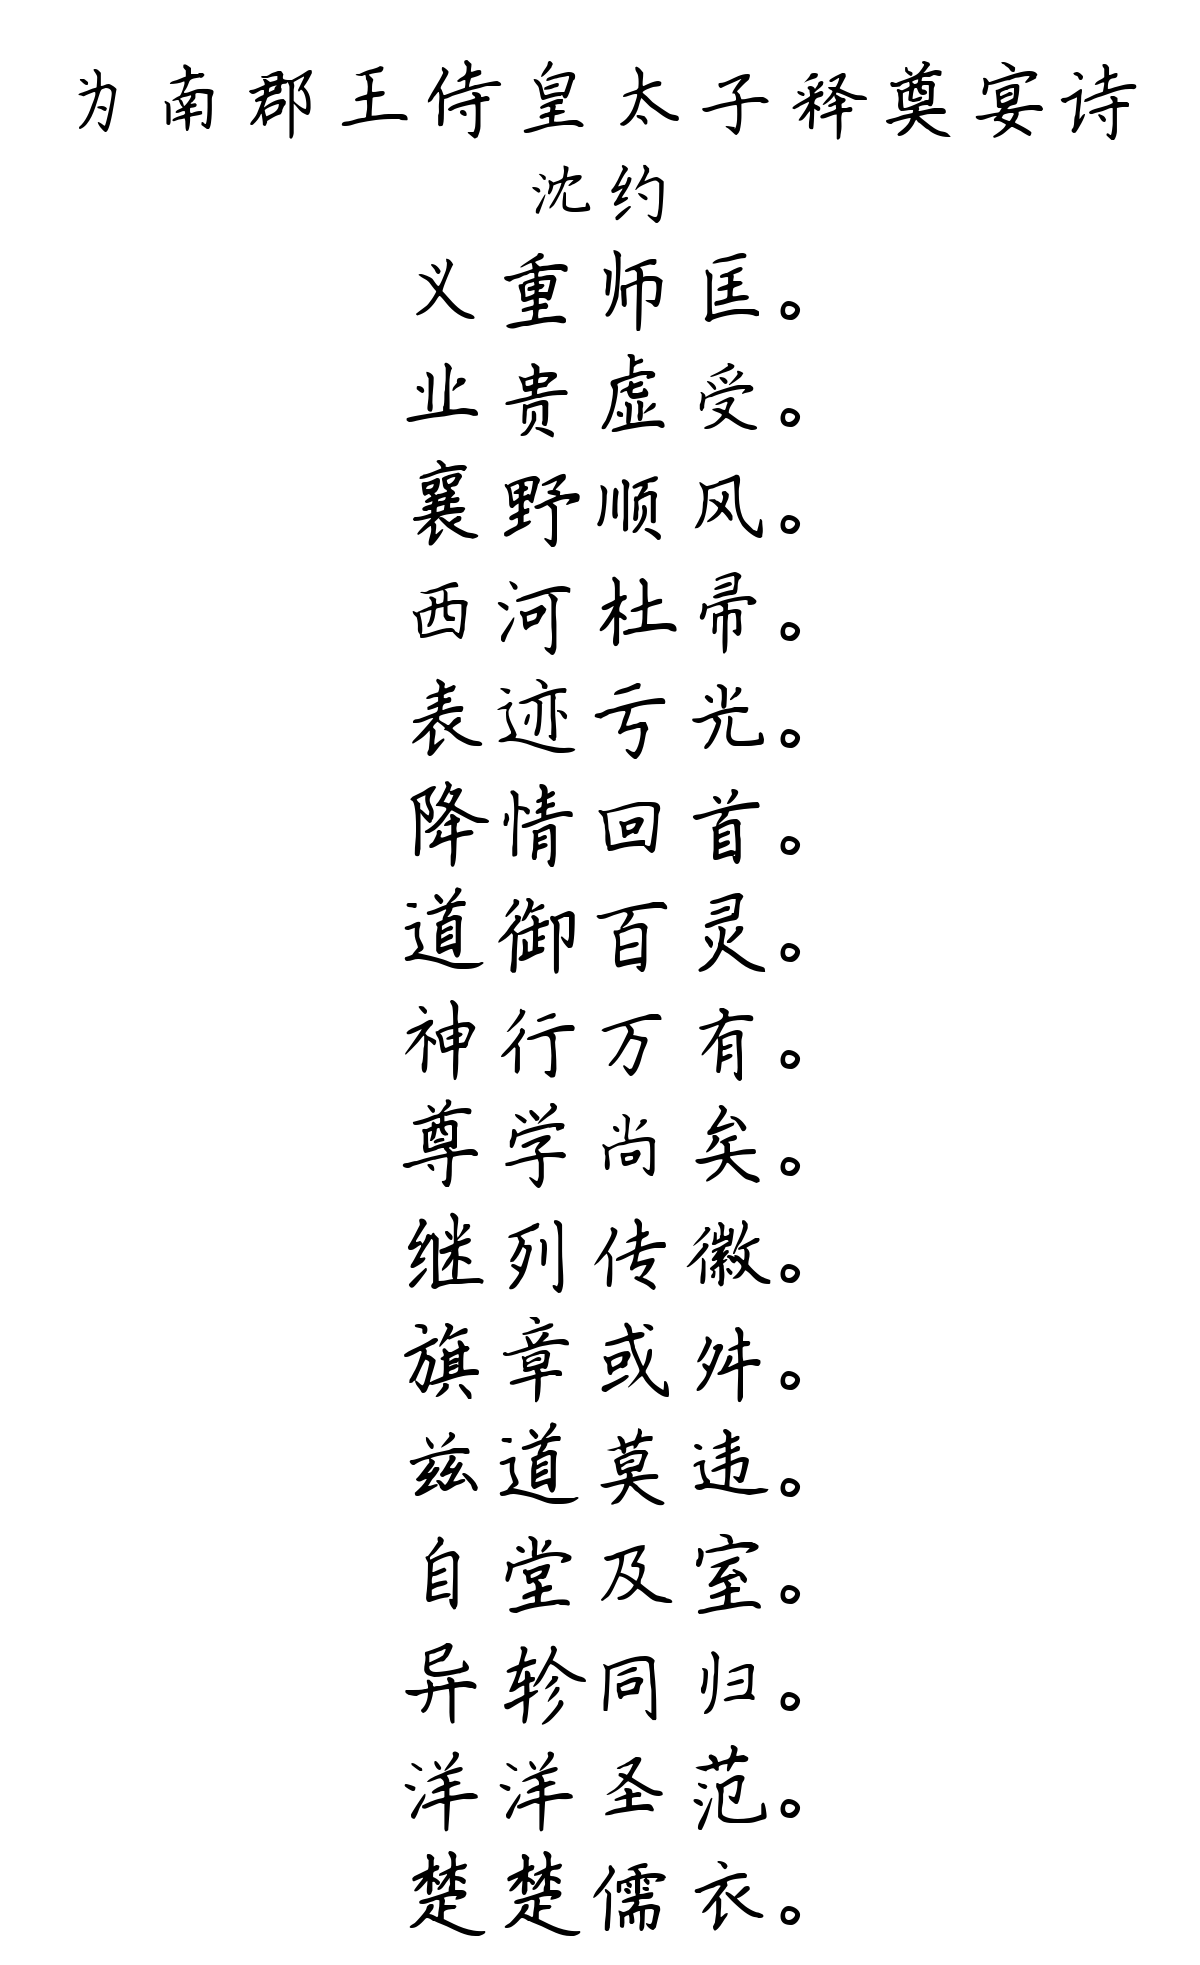 为南郡王侍皇太子释奠宴诗
沈约
义重师匡。
业贵虚受。
襄野顺风。
西河杜帚。
表迹亏光。
降情回首。
道御百灵。
神行万有。
尊学尚矣。
继列传徽。
旗章或舛。
兹道莫违。
自堂及室。
异轸同归。
洋洋圣范。
楚楚儒衣。